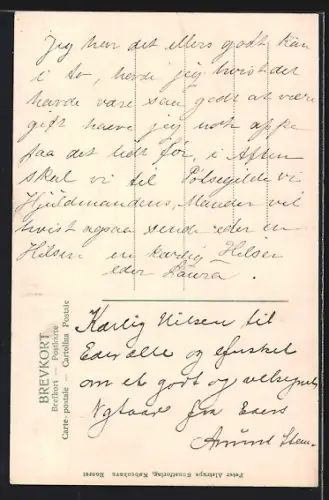 Jeg har det ellers godt kan
i tro, havde jeg hvist det
havde være saa godt at være
gift havde jeg nok
paa det lidt før, i Aften
skal vi til Pølsegilde vi
Hjuldmandens, Manden vil
hvist ogsaa sende eder en
Hilsen en kærlig Hilsen
eder Laura.
BREVKORT
Brefkort — Postkarte
Carte-postale — Cartolina Postale
Kærlig Hilsen til
Eder alle og ønsket
om et godt og velsignet
Nytaar fra Eders
Peter Alstrups Kunstforlag, København Eneret